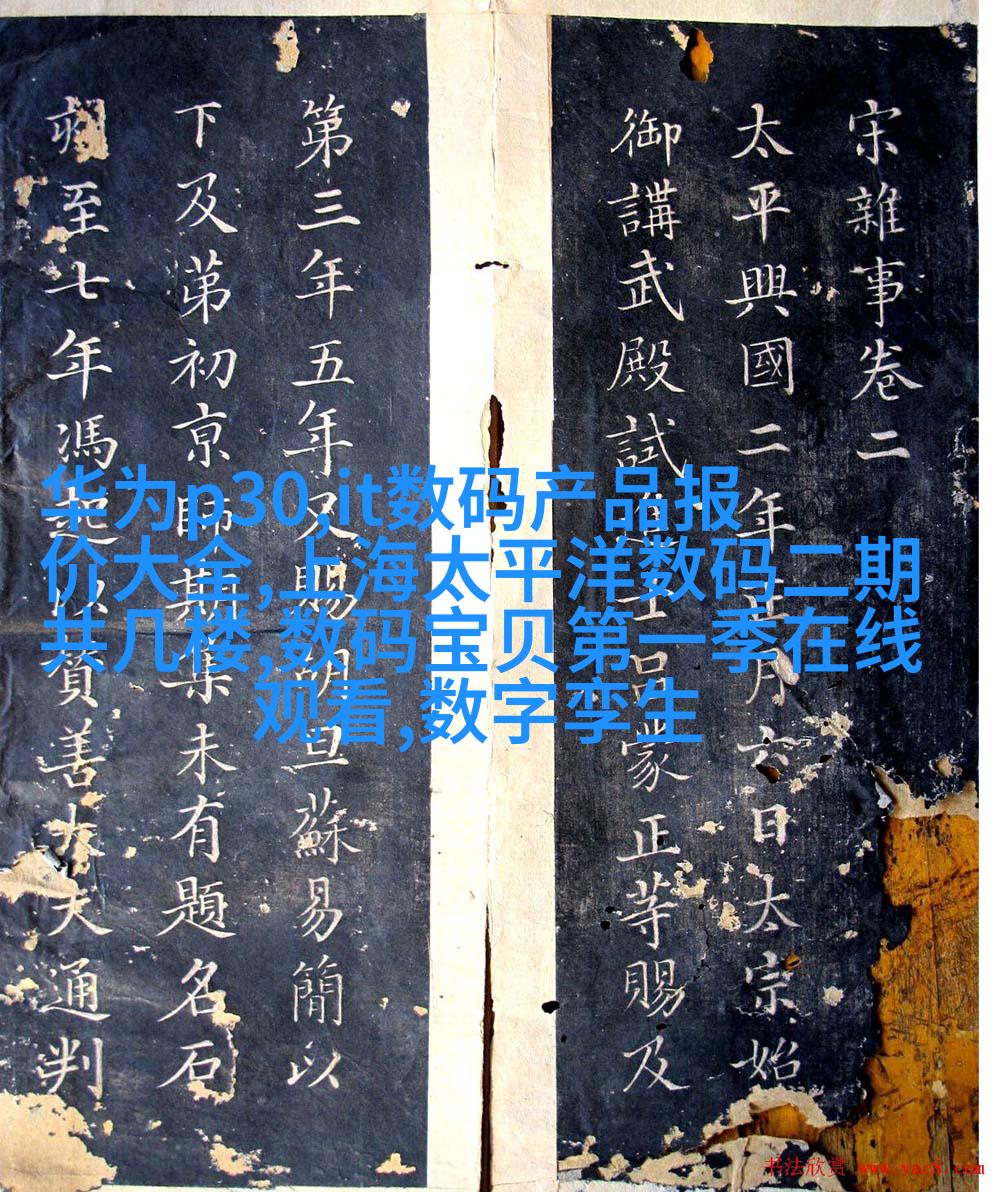 宋雜事卷二
太平興國二年月六日太宗始
御講武殿試士呂蒙正等賜及
第三年五年又賜胡旦蘇易簡以
下及苐初京師期集未有題名石
至七年馮起以贊善大夫通判
华为p30,it数码产品报
价大全,上海太平洋数码二期
共几楼,数码宝贝第一季在线
观看,数字孪生
书法欣赏 www.yac8.com